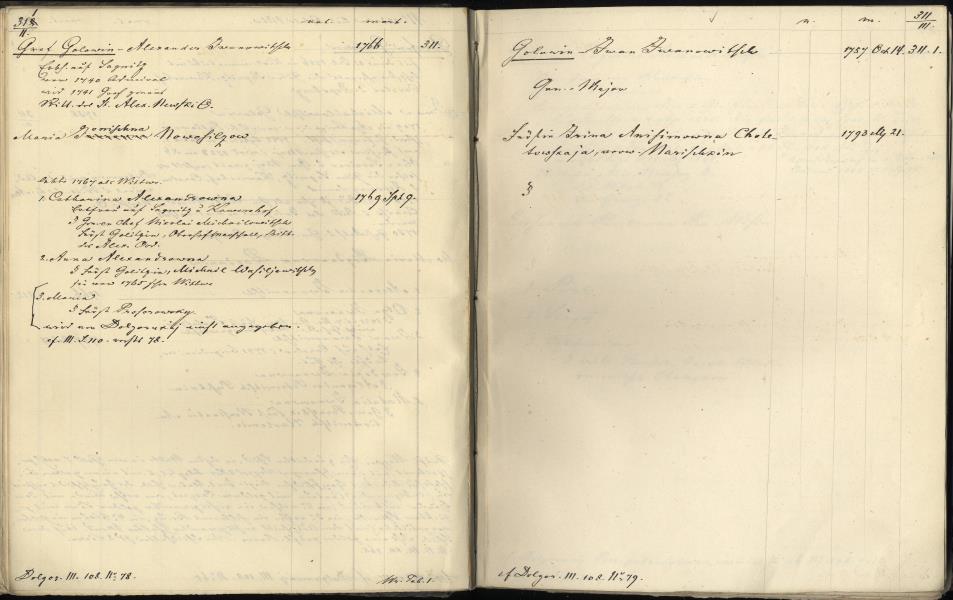 311
II.
nat. mort.
Graf Golowin - Alexander Iwanowitsch 1766 311.
Erbh. auf Sagnitz
war 1740 Admiral
wird 1741 Graf genannt
Ritt. des St. Alex. Newski O.
Maria Nowosilzow
lebte 1767 als Wittwe.
1. Catharina Alexandrowna 1769 Spt 9.
Erbfrau auf Sagnitz u Kawershof
Gen en Chef Nicolai Michailowitsch
Fürst Golitzin, Oberhofmarschall, Ritt.
des Alex. Ord.
2. Anna Alexandrowna
Fürst Golitzin, Michail Wasiljewitsch
sie war 1765 schon Wittwe
3. Maria
Fürst Prosorowsky.
wird von Dolgorukij nicht angegeben.
cf. III. 110. 78.
Dolgor. III. 108. No 78.
Tab. 1.
n. m. 311
III.
Golowin - Iwan Iwanowitsch 1757 Oct 14. 311. 1.
Gen. Major
Fürstin Irina Anisimowna Chole- 1793 My 21.
towskaja, verw. Narischkin
§
cf Dolgor. III. 108. No 79.